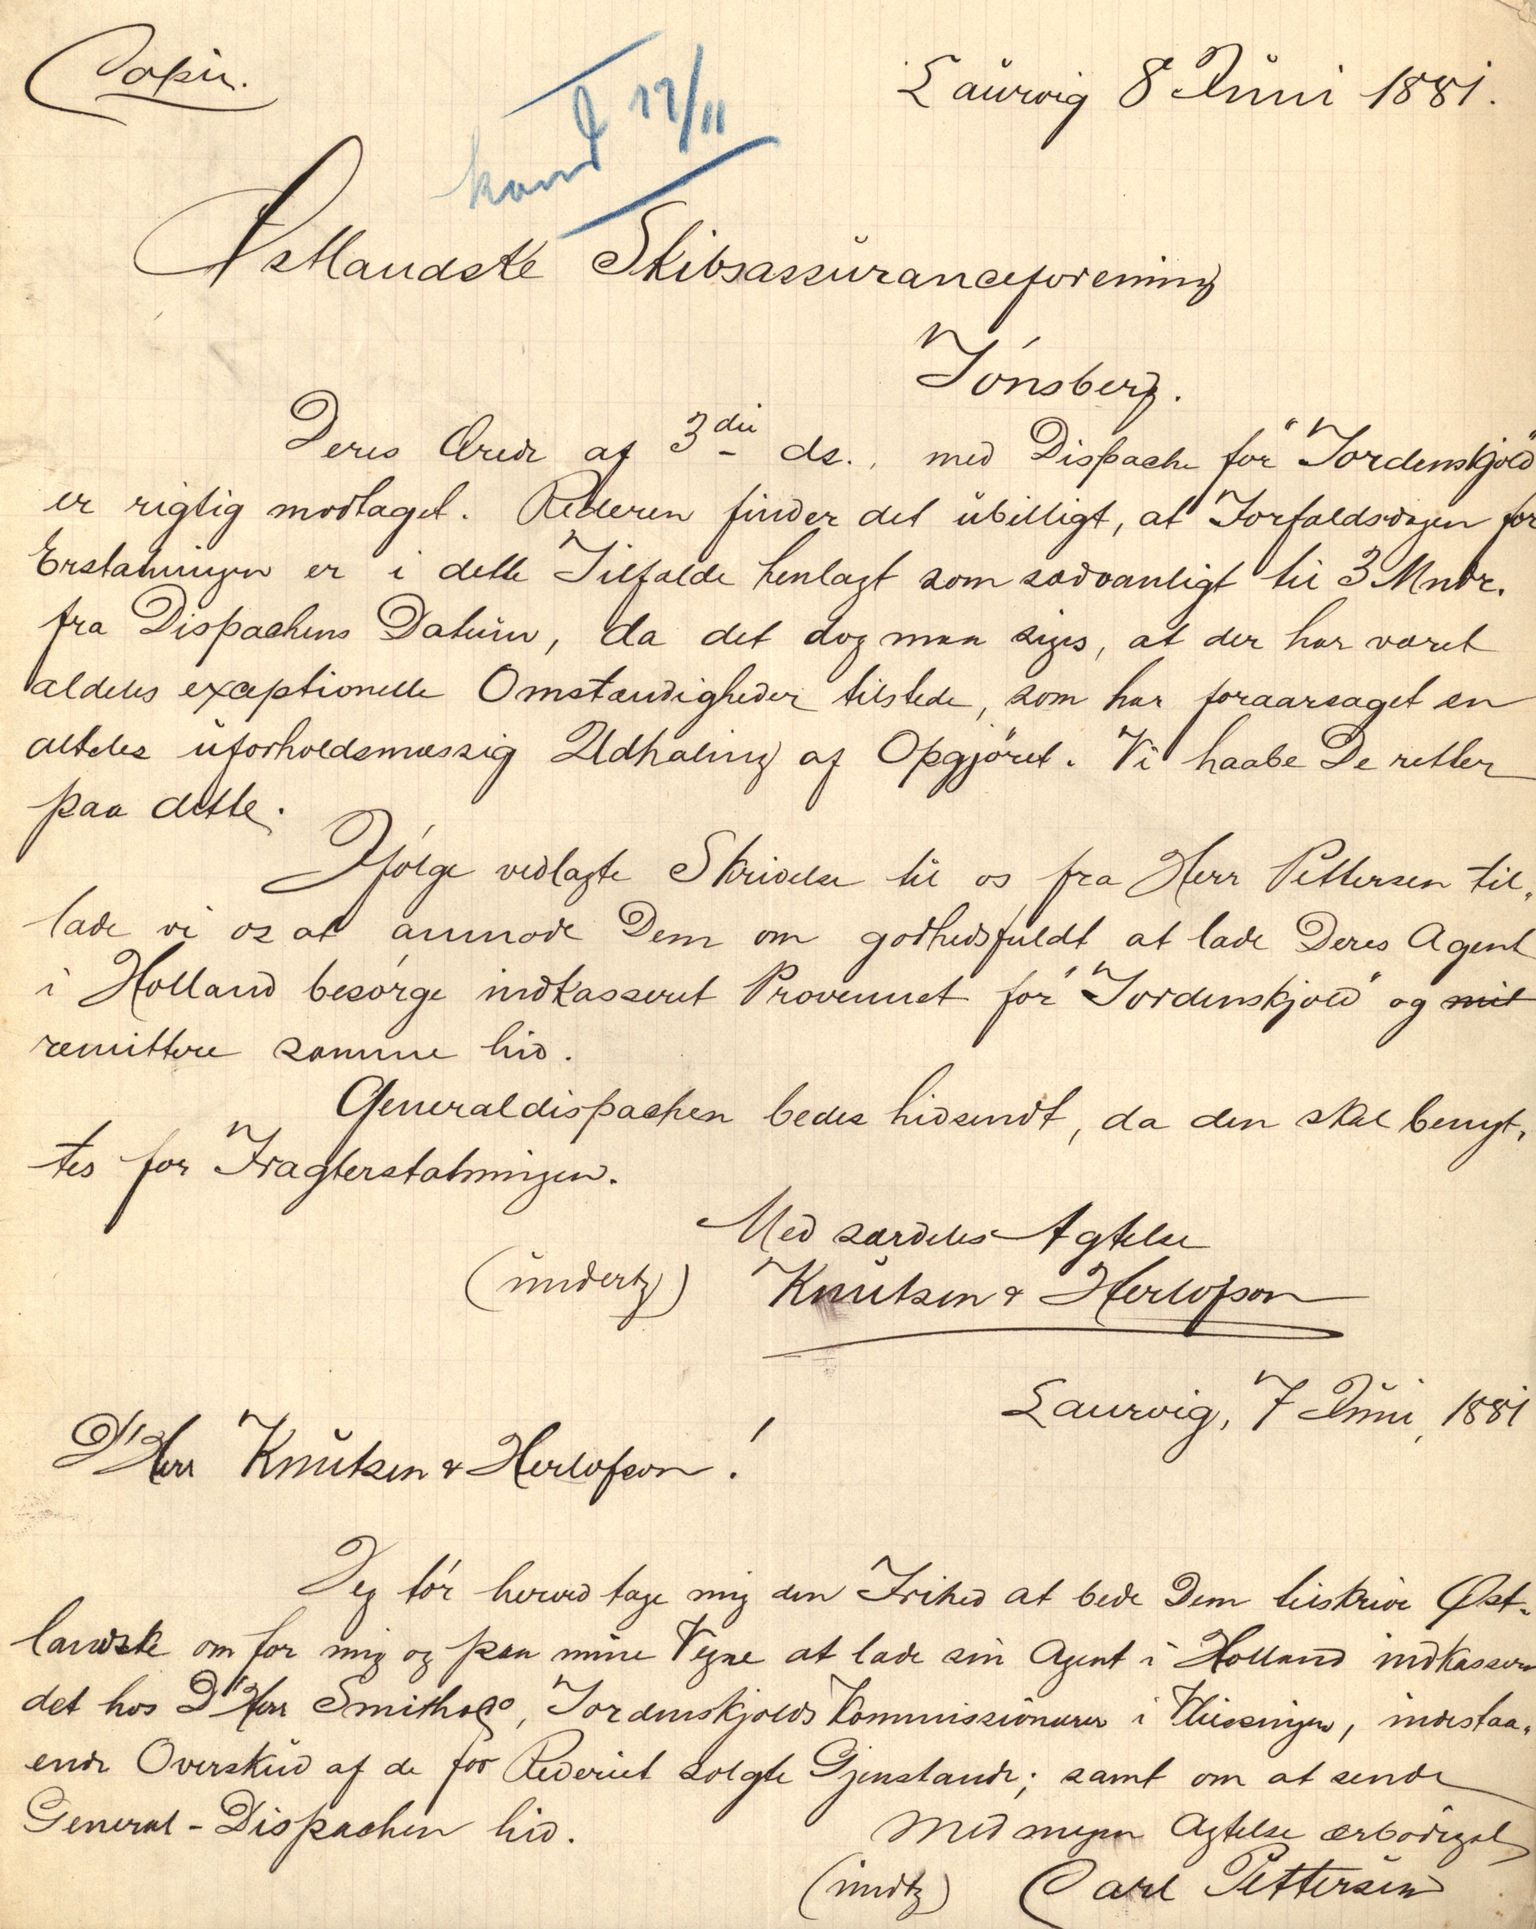 Copie.
Laurvig 8 Juni 1881.
17/11
Østlandske Skibsassuranceforening
Tónsberg.
Deres Ærede af 3die ds., med Dispache for "Tordenskjold"
er rigtig modtaget. Rederen finder det ubilligt, at Forfaldsdagen for
Erstatningen er i dette Tilfælde henlagt som sædvanligt til 3 Mndr.
fra Dispachens Datum, da det dog maa siges, at der har været
aldeles exceptionelle Omstændigheder tilstede, som har foraarsaget en
aldeles uforholdsmæssig Udhaling af Opgjöret. Vi haabe De retter
paa dette.
Ifólge vedlagte Skrivelse til os fra Herr Pettersen til-
lade vi os at anmode Dem om godhedsfuldt at lade Deres Agent
i Holland besórge indkasseret Provenuet for "Tordenskjold" og
remittere samme hid.
Generaldispachen bedes hidsendt, da den skal benyt-
tes for Fragterstatningen.
Med særdeles Agtelse
(undertz) Knutsen & Herlofson
Laurvig, 7 Juni, 1881
D'Herr Knutsen & Herlofson!
Jeg tór herved tage mig den Frihed at bede Dem tilskrive Øst-
landske om for mig og paa mine Vegne at lade sin Agent i Holland indkassere
det hos D'Herr Smith & Co, Tordenskjolds Kommissionærer i Vlissingen, indestaa-
ende Overskud af de for Rederiet solgte Gjenstande; samt om at sende
General-Dispachen hid.
Med megen Agtelse ærbödigst
(undtz) Carl Pettersen